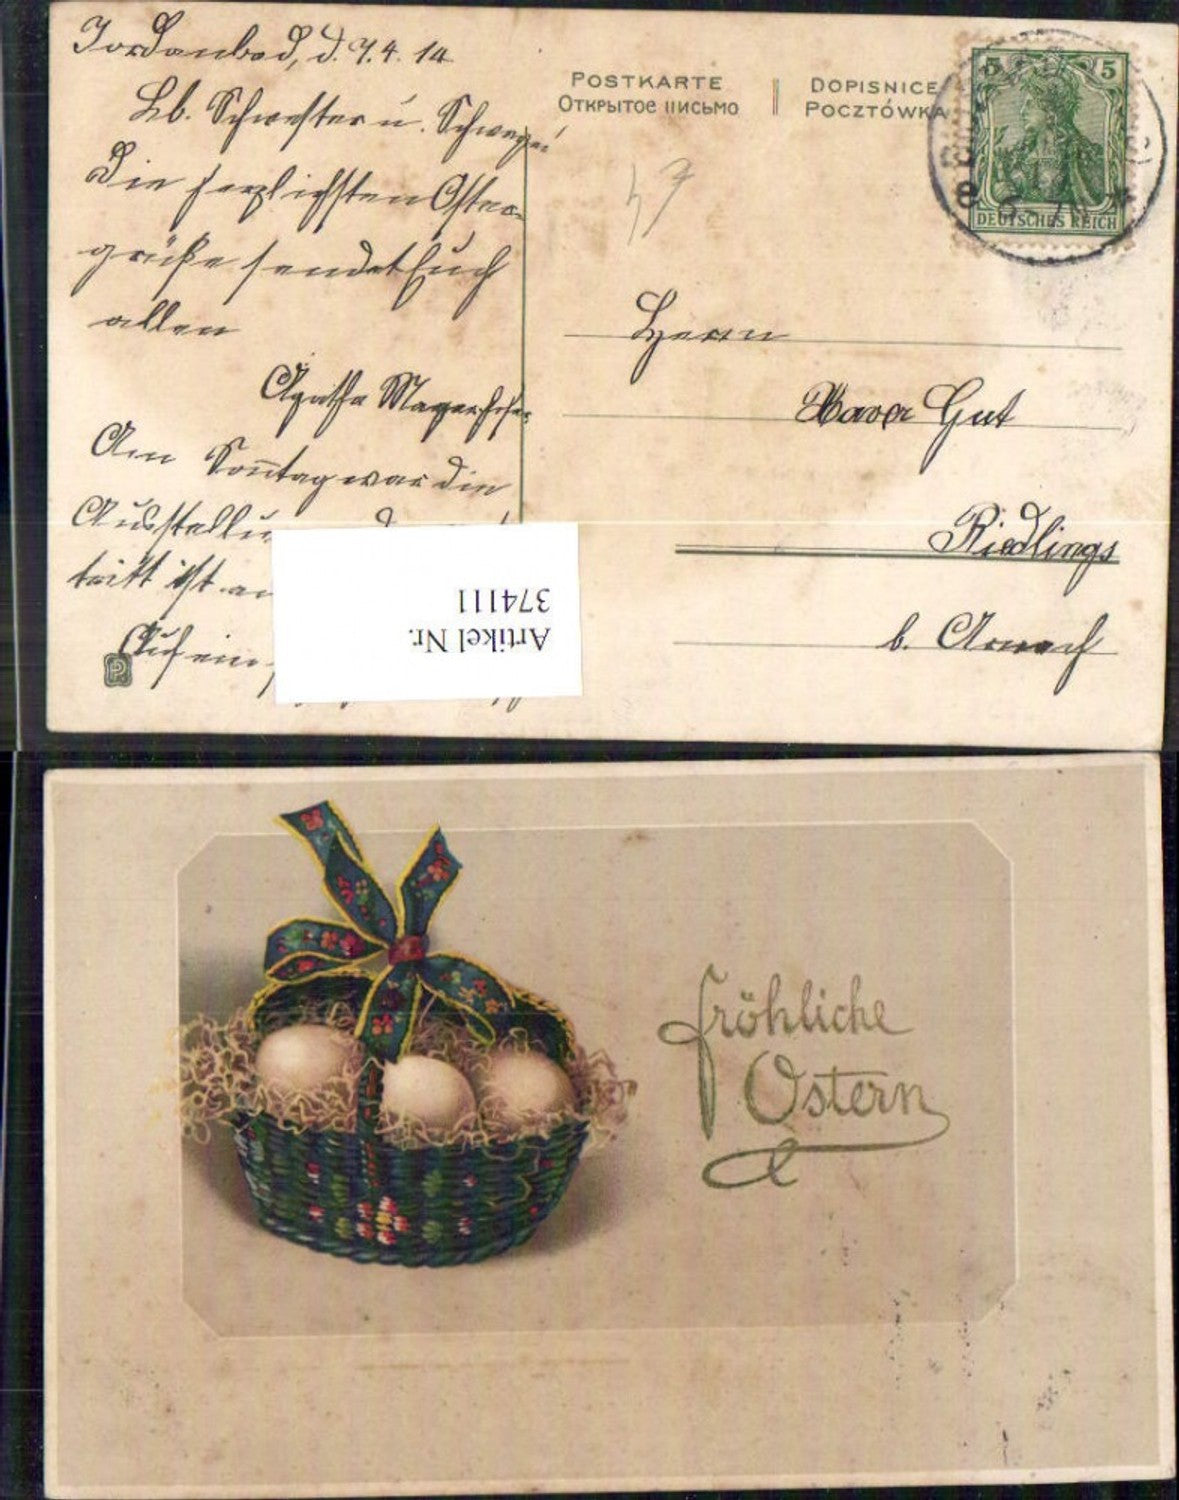 Jordanbad, d. 7.4. 14
Lb. Schwester u. Schwager
Die herzlichsten Oster-
grüße sendet Euch
allen
Agatha Mayerhofer
Am Sonntag war die
Ausstellu
tritt ist an
Auf ein
POSTKARTE
Открытое письмо
DOPISNICE
POCZTÓWKA
5 5
DEUTSCHES REICH
47
Herrn
Xaver Gut
Riedlings
b. Arnach
Artikel Nr.
374111
P
Fröhliche
Ostern